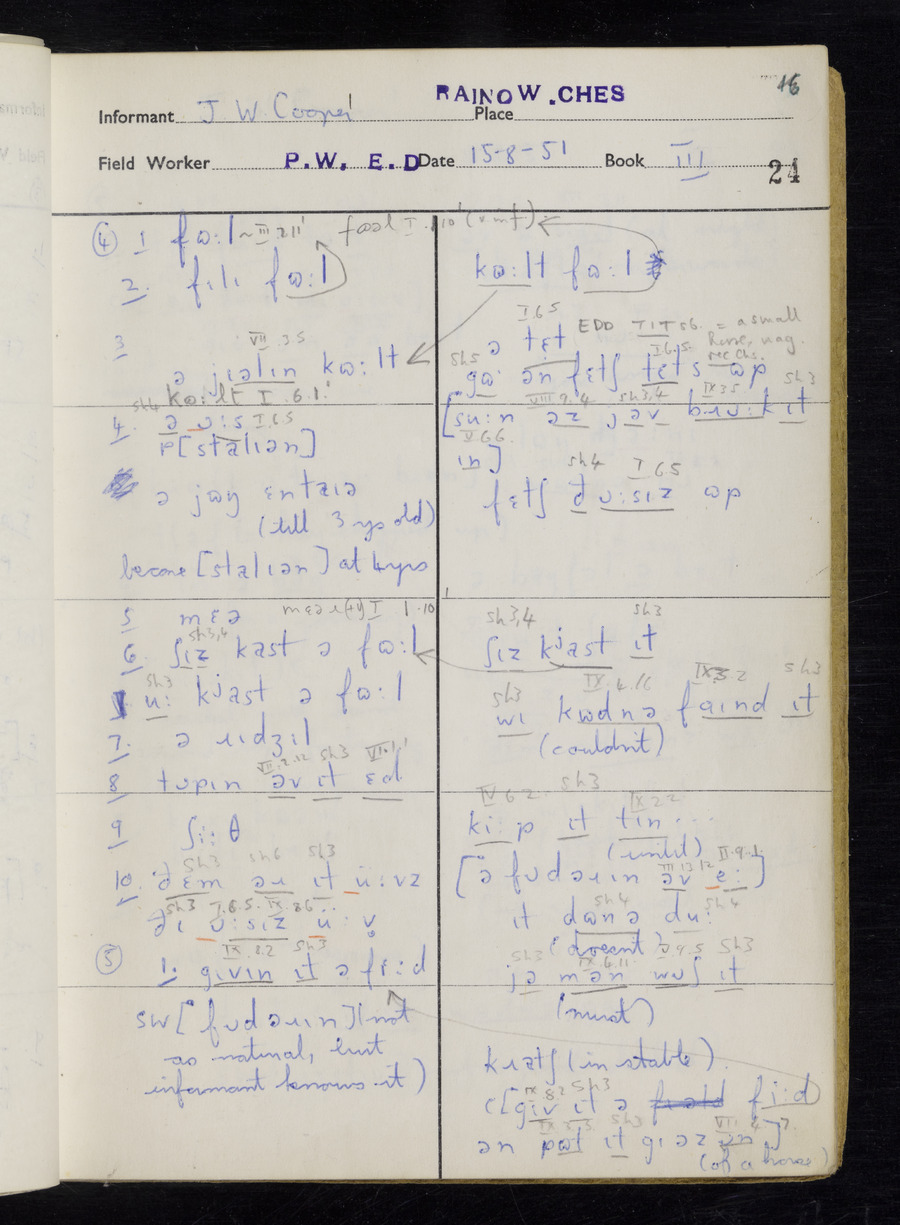 16
RAINOW.CHES
Informant J. W. Cooper Place
Field Worker P.W. E.D Date 15-8-51 Book III
24
④ 1 fʊ:l ~ III 2 11 fʊəl I 1 10 (v. inf)
2. fɪlɪ fʊ:l
3 VII 3.5
ə jɪəlɪn kʊ:lt
kʊ:lt I 6.1
4. sh4 ə ʊ:s I.6.5
P[stalɪən]
ə jaŋ ɛntaɪə
(till 3 yrs old)
become [stalɪən] at 4 yrs
5 mɛə I 1.10
6. sh3,4
ʃɪz kast ə fʊ:l
sh3
u: kjast ə fʊ:l
7. ə ɹɪdʒɪl
8 VII.2.12 sh3 VI.1.1
tʊpɪn əv ɪt ɛd
9 ʃi: θ
sh3 sh6 sh3
10. ðɛm əɹ ɪt u:vz
sh3 I.6.5. IX.8.6
ðɪ ʊ:sɪz u:v
⑤ IX.8.2 sh3
1. gɪvɪn ɪt ə fi:d
SW [fʊdəɹɪn] (not
as natural, but
informant knows it)
kʊ:lt fʊ:l
I 6 5
ə tɛt EDD TIT sb. = a small
horse, nag.
sh5 I 6.5. rec Chs.
gʊ ən fɛtʃ tɛts ʊp
VIII 9.4 sh3,4 IX 3 5 sh3
[su:n əz jəv bɹʊ:k ɪt
V 6 6.
ɪn]
sh4 I 6 5
fɛtʃ ð ʊ:sɪz ʊp
sh3,4 sh3
ʃɪz kjast ɪt
sh3 IX.4.16 IX 3 2 sh3
wɪ kʊdnə faɪnd ɪt
(couldn't)
IV 6 2 sh3 IX 2 2
ki:p ɪt tɪn...
(until)
III 13 12 II.9.1
[ə fʊdəɹɪn əv e:]
sh4 sh4
ɪt dʊnə du:
(doesn't)
sh3 IX.6.11 V.9.5 sh3
jə mən wɒʃ ɪt
(must)
kɹatʃ (in stable).
IX.8.2 sh3
([gɪv ɪt ə fi:d
IX 3.3. sh3 VII
ən pʊt ɪt gɪəz ɒn]
(of a horse)